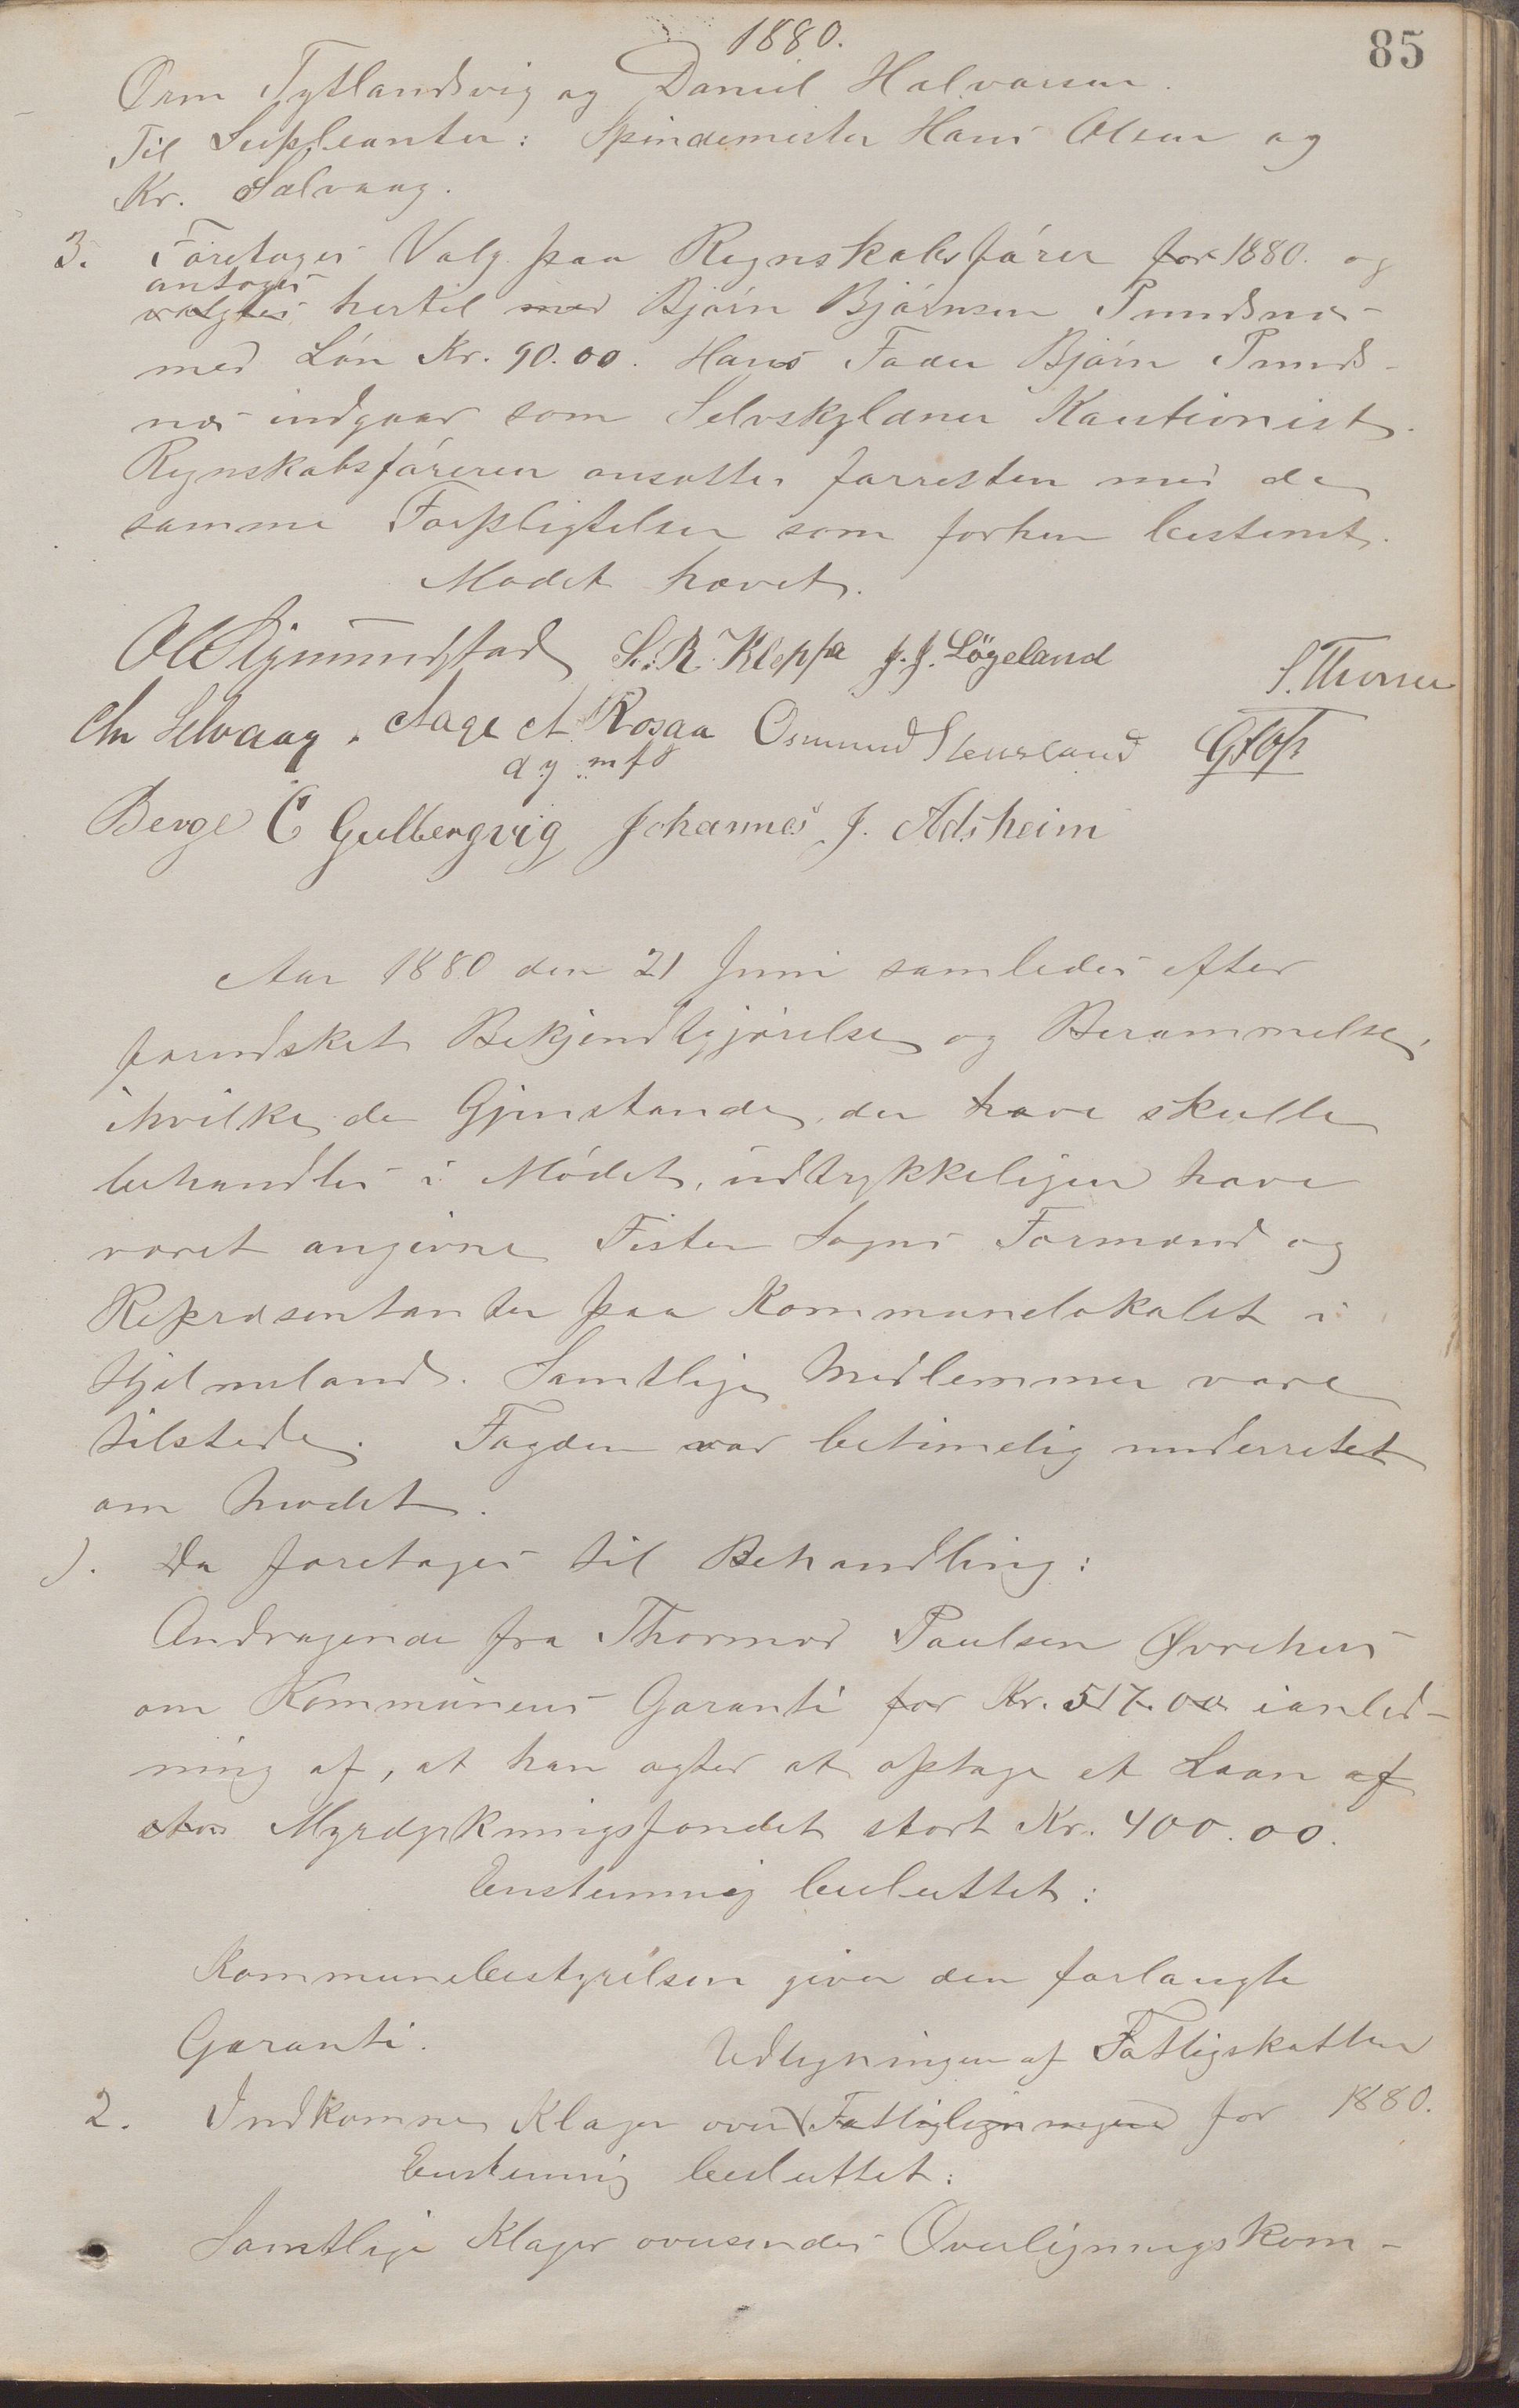 1880.
85
Orm Tytlandsvig og Daniel Halvorsen.
Til Supleanter: Spindemester Hans Olsen og
Kr. Sælvaag.
3. Foretages Valg paa Regnskabsfører for 1880. og
antoges
valgtes hertil med Bjørn Bjørnsen Pundsnæs
med Løn Kr. 90.00. Hans Fader Bjørn Punds-
næs indgaar som Selvskyldner Kautionist.
Regnskabsføreren ansættes forresten med de
samme Forpligtelser som forhen bestemt.
Mødet hævet.
Ol Sigmundstad S. R. Kleppa J. J. Lögeland
S. Thorsen
Chr Selvaag. Aage A Rosaa Osmund Stensland
d y m f ö
Berge E Gulbergvig Johannes J. Adsheim
Aar 1880 den 21 Juni samledes efter
forudsket Bekjendtgjørelse og Berammelse,
ihvilke de Gjenstande, der have skulle
behandles i Mødet, udtrykkeligen have
været angivne Fister Sogns Formænd og
Repræsentanter paa Kommunelokalet i
Hjelmeland. Samtlige Medlemmer vare
tilstede. Fogden var betimelig underrettet
om Mødet.
1). Da foretages til Behandling:
Andragende fra Thormod Paulsen Øvrehus
om Kommunens Garanti for Kr. 517.00 ianled-
ning af, at han agter at optage et Laan af
Myrdyrkningsfondet stort Kr. 400.00.
Enstemmig besluttet:
Kommunebestyrelsen giver den forlangte
Garanti.
Udligningen af Fattigskatten
2. Indkomne Klager over Fattigligningen for 1880.
Enstemmig besluttet:
Samtlige Klager oversendes Overligningskom-